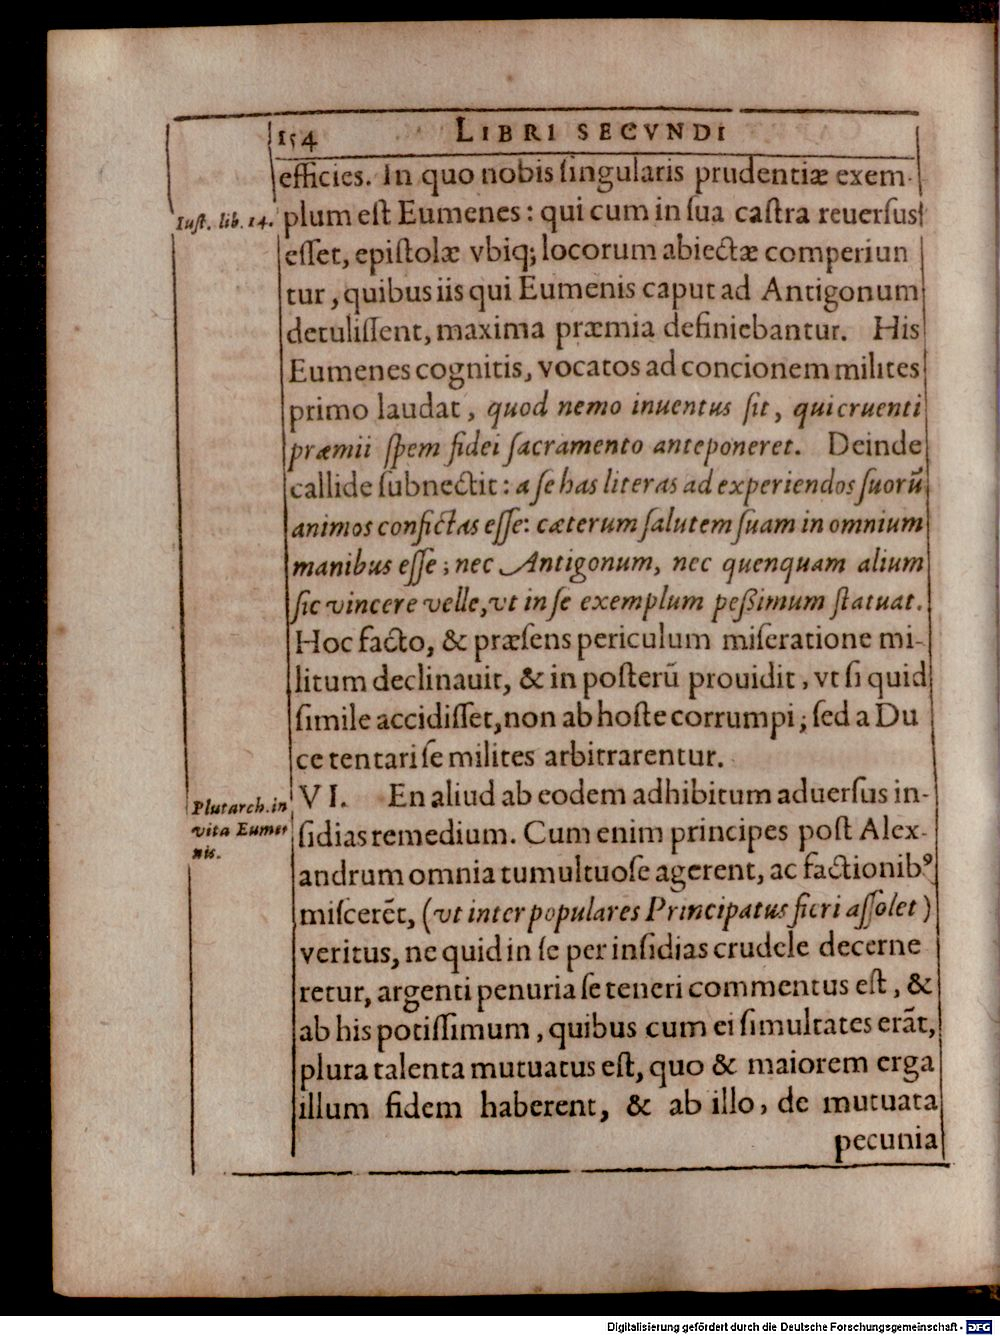 154 LIBRI SECVNDI
efficies. In quo nobis ſingularis prudentiæ exem-
Iuſt. lib. 14.
plum eſt Eumenes: qui cum in ſua caſtra reuerſus
eſſet, epiſtolæ vbiq; locorum abiectæ comperiun
tur, quibus iis qui Eumenis caput ad Antigonum
detuliſſent, maxima præmia definiebantur. His
Eumenes cognitis, vocatos ad concionem milites
primo laudat, quod nemo inuentus ſit, qui cruenti
præmii ſpem fidei ſacramento anteponeret. Deinde
callide ſubnectit: a ſe has literas ad experiendos ſuorũ
animos confictas eſſe: cæterum ſalutem ſuam in omnium
manibus eſſe; nec Antigonum, nec quenquam alium
ſic vincere velle, vt in ſe exemplum peßimum ſtatuat.
Hoc facto, & præſens periculum miſeratione mi-
litum declinauit, & in poſterũ prouidit, vt ſi quid
ſimile accidiſſet, non ab hoſte corrumpi; ſed a Du
ce tentari ſe milites arbitrarentur.
Plutarch. in
vita Eume
nis.
VI. En aliud ab eodem adhibitum aduerſus in-
ſidias remedium. Cum enim principes poſt Alex-
andrum omnia tumultuoſe agerent, ac factionibꝰ
miſcerẽt, (vt inter populares Principatus fieri aſſolet)
veritus, ne quid in ſe per inſidias crudele decerne
retur, argenti penuria ſe teneri commentus eſt, &
ab his potiſſimum, quibus cum ei ſimultates erãt,
plura talenta mutuatus eſt, quo & maiorem erga
illum fidem haberent, & ab illo, de mutuata
pecunia
Digitalisierung gefördert durch die Deutsche Forschungsgemeinschaft - DFG